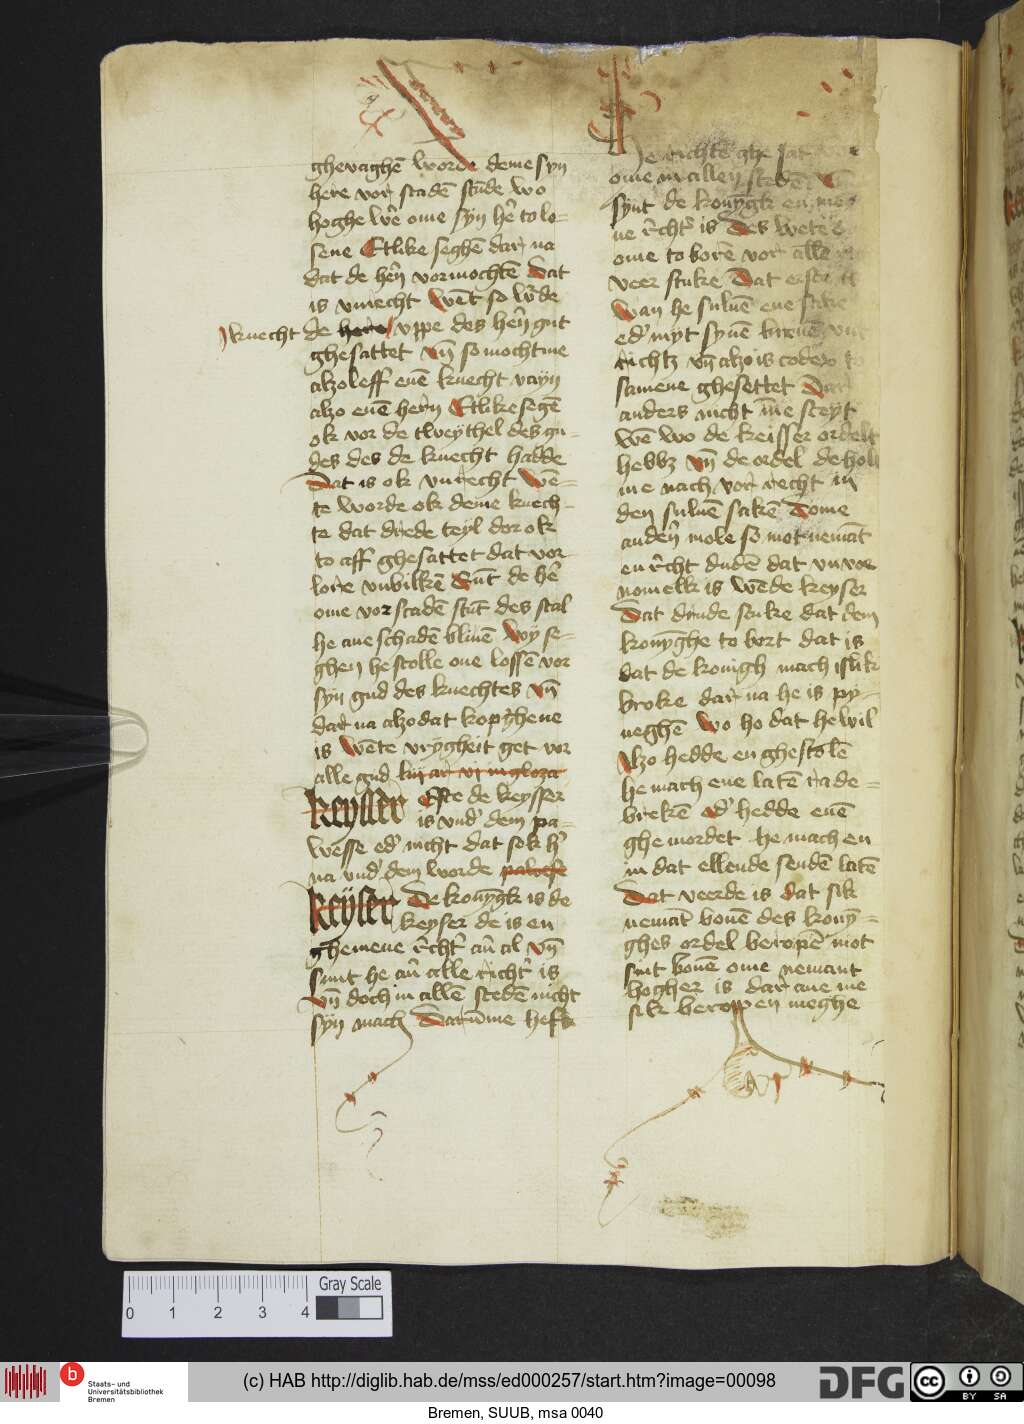 ghevaghē worde deme syn
here vor stadē stūde wo
hoghe w̄e ome syn hē to lo-
sene Etlike seghē dar na
dat de hēn vormochtē dat
is vnrecht wēt so w̄de
knecht de here vppe des hēn gut
ghesattet vn̄ so mochtme
alzoleff enē knecht
alzo enē hern Etlike segē
ok vor de tweythel des gu-
des des de knecht hadde
Dat is ok vnrecht wē-
te worde ok deme knech-
te dat drede teyl dor ok
to aff ghesattet dat vor
lore vnbilkē Sūt de hē
ome vor stadē stūt des scal
he ane schadē bliuē wy se-
ghen he scolle one lossē vor
syn gud des knechtes vn̄
dar na alzodat kopghene
is wēte vrygheit get vor
alle gud
keyser Efte de keysser
is vnd' dem pa-
wesse ed' nicht dat sok h'
na vnd' dem worde pawese
keyser De konyngk is de
keyser de is en
ghemene r̄cht' au̅ al vn̄
sint he au̅ alle richt' is
vn̄ doch in allē stedē nicht
syn mach Darūme heft
he richtē ghe sat
ome in allen stedē
synt de konyngk en mē
ne r̄cht' is Des wetē
ome to borē vor alle
veer stuke Dat erste
wan he suluē ene
ed' myt synē breuē vn
richtz vn̄ alzo is codex to
samene ghesettet Dar
anders nicht i̅ne steyt
wē wo de keisser ordelt
hebbz vn̄ de ordel de hol
me nach vor recht in
den suluē sakē Tome
andern mole so mot nemāt
en r̄cht dudē dat vn vor
nomelk is wēde keyser
Dat drude stuke dat dem
konyghe to bort dat is
dat de konigh mach islik
broke dar na he is py-
neghē wo ho dat he wil
Alzo hedde en ghestolē
he mach ene latē rade-
brekē ed' hedde enē
ghemordet he mach en
in dat ellende sendē latē
Dat veerde is dat sik
nemāt bouē des kony-
ghes ordel beropē mot
sint bouē ome nemant
hogher is dar ane me
sik beroppen meghe
0 1 2 3 4
Gray Scale
b
Staats- und
Universitätsbibliothek
Bremen
(c) HAB http://diglib.hab.de/mss/ed000257/start.htm?image=00098
DFG
cc BY SA
Bremen, SUUB, msa 0040